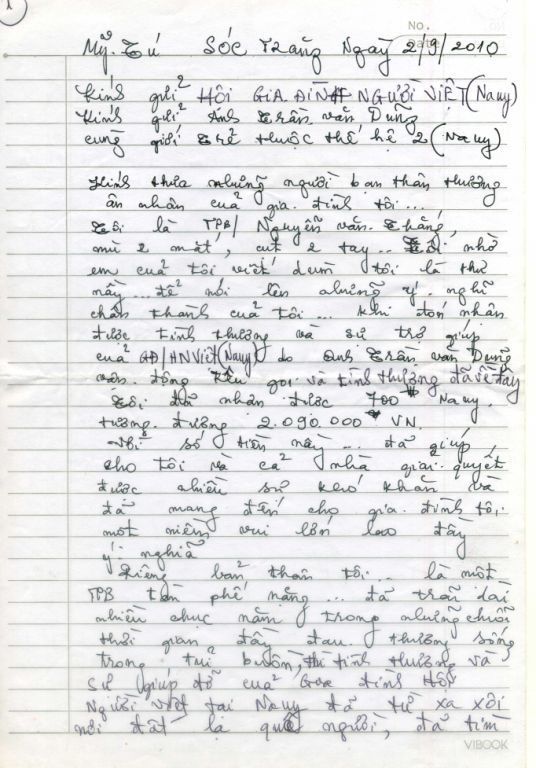 No.
Date
Mỹ. Tú SÓC TRĂNG Ngày 2/9/2010
Kính gửi HỘI GIA ĐÌNH NGƯỜI VIỆT (Nauy)
Kính gửi Anh Trần văn Dũng
cùng giới trẻ thuộc thế hệ 2 (Nauy)
Kính thưa những người bạn thân thương
ân nhân của gia. đình tôi...
Tôi là TPB/ Nguyễn văn. Thắng,
mù 2 mắt, cụt 2 tay... Tôi nhờ
em của tôi viết dùm tôi lá thư
nầy... để nói lên những ý nghĩ
chân thành của tôi... khi đón nhận
được tình thương và sự trợ giúp
của GĐ/HNViệt (Nauy) do anh Trần văn Dũng
vận. động kêu gọi và tình thương đã về đây
Tôi đã nhận được 700 Nauy.
tương. đương 2.090.000 VN.
Với số tiền này... đã giúp
cho tôi và cả nhà giải. quyết
được nhiều sự khó khăn và
đã mang đến cho gia. đình tôi,
một niềm vui lớn lao đầy
ý nghĩa
Riêng bản thân tôi... là một
TPB tàn phế nặng... đã trãi dài
nhiều chục năm trong những chuỗi
thời gian đầy đau thương sống
trong tuổi buồn, thì tình thương và
sự giúp đỡ của Gia đình Hội
Người việt tại Nauy đã từ xa xôi
nơi đất lạ quê người, đã tìm
VIBOOK